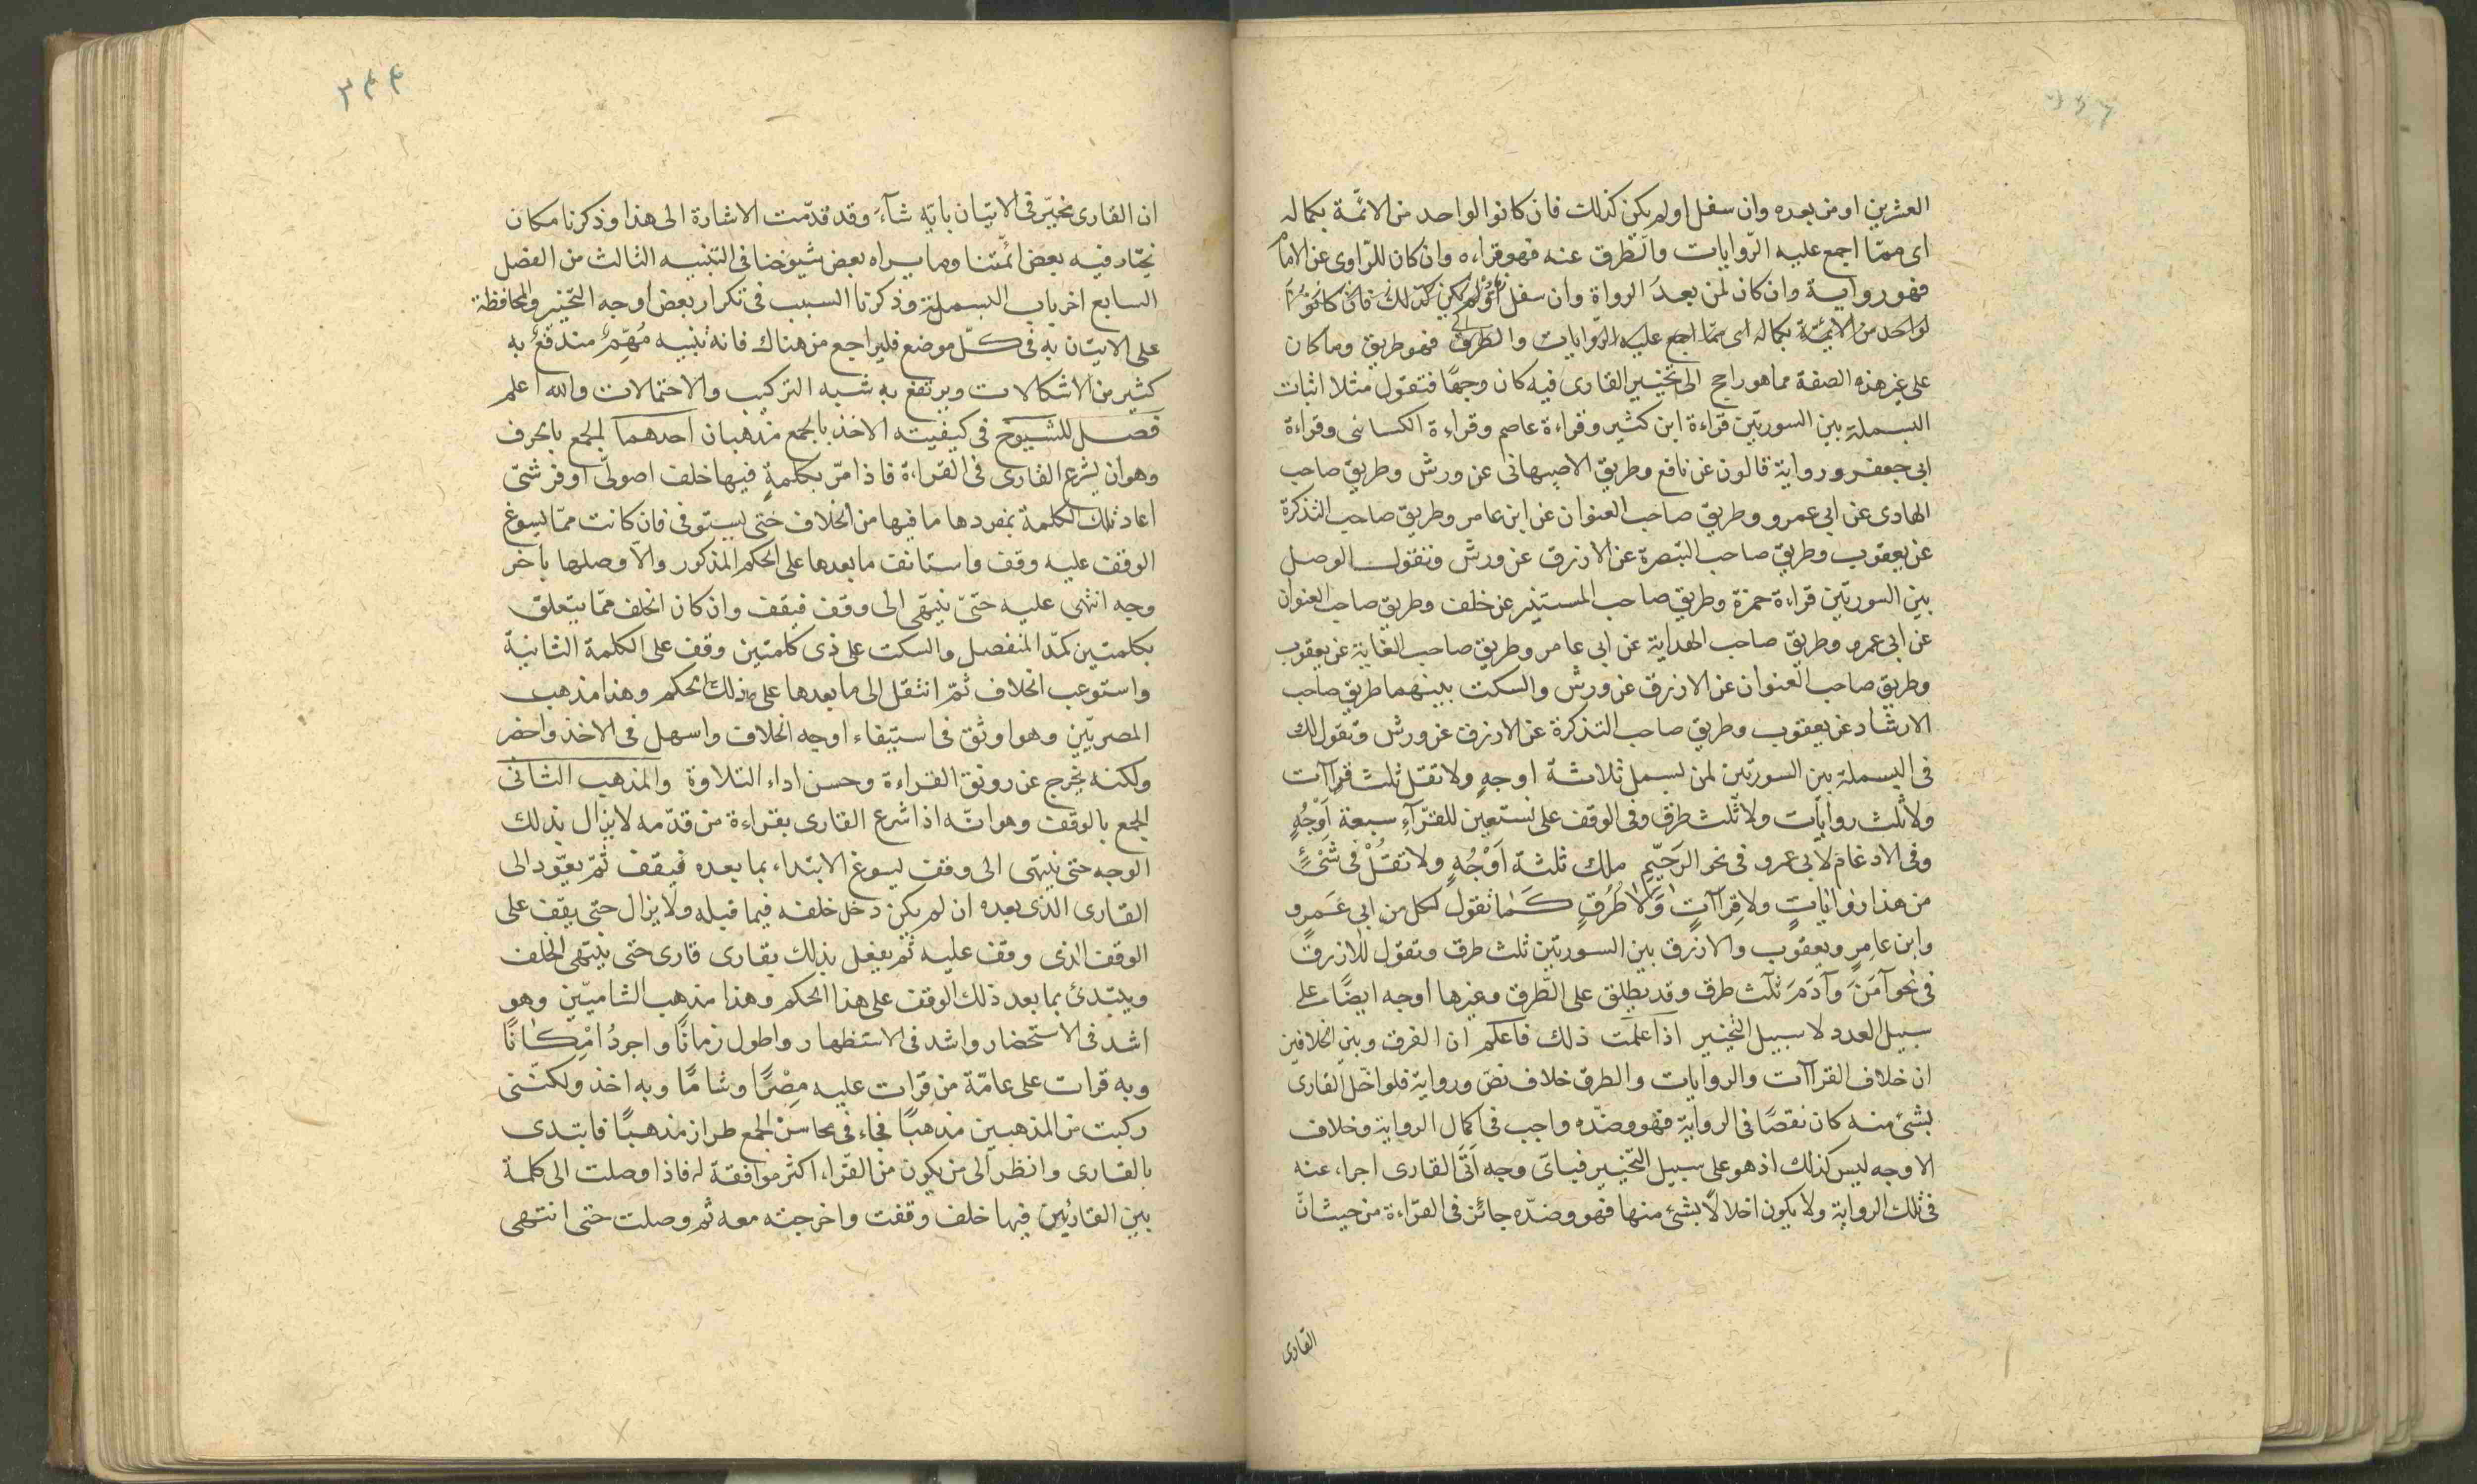 العشرين او من بعده وان سفل او لم يكن كذلك فان كانوا لواحد من الائمة بكماله
اى ممّا اجمع عليه الرّوايات والطرق عنه فهو قراءه وان كان للرّاوى عن الامام
فهو رواية وان كان لمن بعدُ الرواة وان سفل او لم يكن كذلك فان كانوا
لواحد من الائمّة بكماله اى ممّا اجمع عليه الرّوايات والطرق فهو طريق وما كان
على غير هذه الصفة مما هو راجح الى تخيير القارى فيه كان وجهًا فتقول مثلا اثبات
البسملة بين السورتين قراءة ابن كثير وقراءة عاصم وقراءة الكسائى وقراءة
ابى جعفر ورواية قالون عن نافع وطريق الاصبهانى عن ورش وطريق صاحب
الهادى عن ابى عمرو وطريق صاحب العنوان عن ابن عامر وطريق صاحب التذكرة
عن يعقوب وطريق صاحب التبصرة عن الازرق عن ورش ونقول الوصل
بين السورتين قراءة حمزة وطريق صاحب المستنير عن خلف وطريق صاحب العنوان
عن ابى عمرو وطريق صاحب الهداية عن ابى عامر وطريق صاحب الغاية عن يعقوب
وطريق صاحب العنوان عن الازرق عن ورش والسكت بينهما طريق صاحب
الارشاد عن يعقوب وطريق صاحب التذكرة عن الازرق عن ورش وتقول لك
فى البسملة بين السورتين لمن بسمل ثلاثة اوجهٍ ولا تقل ثلث قراآت
ولا ثلث روايات ولا ثلث طرق وفى الوقف على نستعين للقرّآءِ سبعة اَوْجُهٍ
وفى الادغام لابى عمرو فى نحو الرَحيّمِ ملك ثلثة اَوْجُهٍ ولا تقُلْ فى شئٍ
من هذا رواياتٍ ولا قِراآتٍ وَلَا طُرُقٍ كَما نقول لكل من ابى عَمرٍو
وابن عامِرٍ ويعقوب والازرق بين السورتين ثلث طرق وتقول للازرق
فى نحو آمَنَ وَآدَمَ ثلث طرق وقد يطلق على الطّرق وغيرها اوجه ايضًا على
سبيل العدد لا سبيل التخيير اذا علمت ذلك فاعلم ان الفرق وبين الخلافين
ان خلاف القراآت والروايات والطرق خلاف نصّ ورواية فلو اخل القارى
بشئ منه كان نقصًا فى الرواية فهو وضدّه واجب فى اكمال الرواية وخلاف
الاوجه ليس كذلك اذ هو على سبيل التّخيير فباىّ وجه اَتَى القارى اجراء عنه
فى تلك الرواية ولا يكون اخلالًا بشئ منها فهو وضدّه جائز فى القرّاءة من حيث انّ
القارى
٣٤٤
ان القارى مخيّر فى الاتيان بايّه شآءَ وقد قدّمت الاشارة الى هذا وذكرنا مكان
يختاد فيه بعض ائمّتنا وما يراه بعض شيوخنا فى التنبيه الثالث من الفصل
السابع اخر باب البسملة وذكرنا السبب فى تكرار بعض اوجه التخيير والمحافظة
على الاتيان به فى كلّ موضع فليراجع من هناك فانه تنبيه مُهِمٌّ مندفعٌ به
كثير من الاشكالات ويرتفع به شبه التركيب والاحتمالات والله اعلم
فصل للشيوخ فى كيفيته الاخذ بالجمع مذهبان احدهما الجمع بالحرف
وهو ان يشرع القارى فى القراءة فاذا مرّ بكلمةٍ فيها خلف اصولىّ او فرشىّ
اعاد تلك الكلمة بمفردها ما فيها من الخلاف حتى يستوفى فان كانت ممّا يسوغ
الوقف عليه وقف واستانف ما بعدها على الحكم المذكور والّا وصلها بآخر
وجه انتهى عليه حتىّ ينتهى الى وقف فيقف وان كان الخلف ممّا يتعلق
بكلمتين كمدّ المنفصل والسكت على ذى كلمتين وقف على الكلمة الثانية
واستوعب الخلاف ثمّ انتقل الى ما بعدها على ذلك الحكم وهذا مذهب
المصريّين وهو اوثق فى استيفاء اوجه الخلاف واسهل فى الاخذ واخضر
ولكنه يخرج عن رونق القراءة وحسن اداء التلاوة والمذهب الثانى
الجمع بالوقف وهو انّه اذا شرع القارى بقراءة من قدّمه لا يزال بذلك
الوجه حتى ينتهى الى وقف يسوغ الابتداء بما بعده فيقف ثمّ يعود الى
القارى الذى بعده ان لم يكن دخل خلفه فيما قبله ولا يزال حتى يقف على
الوقف الذى وقف عليه ثم يفعل بذلك بقارى قارى حتى ينتهى الخلف
ويبتدئ بما بعد ذلك الوقف على هذا الحكم وهذا مذهب الشاميّين وهو
اشد فى الاستحضار واشد فى الاستظهار واطول زمانًا واجردُ امْكانًا
وبه قرات على عامّة من قرّات عليه مِصْرًا وشامًا وبه اخذ ولكنّنى
ركبت من المذهبين مذهبًا فجاء فى محاسن الجمع طراز مذهبًا فابتدى
بالقارى وانظر الى من يكون من القرّاء اكثر موافقة له فاذا وصلت الى كلمة
بين القارئين فيها خلف وقفت واخرجته معه ثم وصلت حتى انتهى